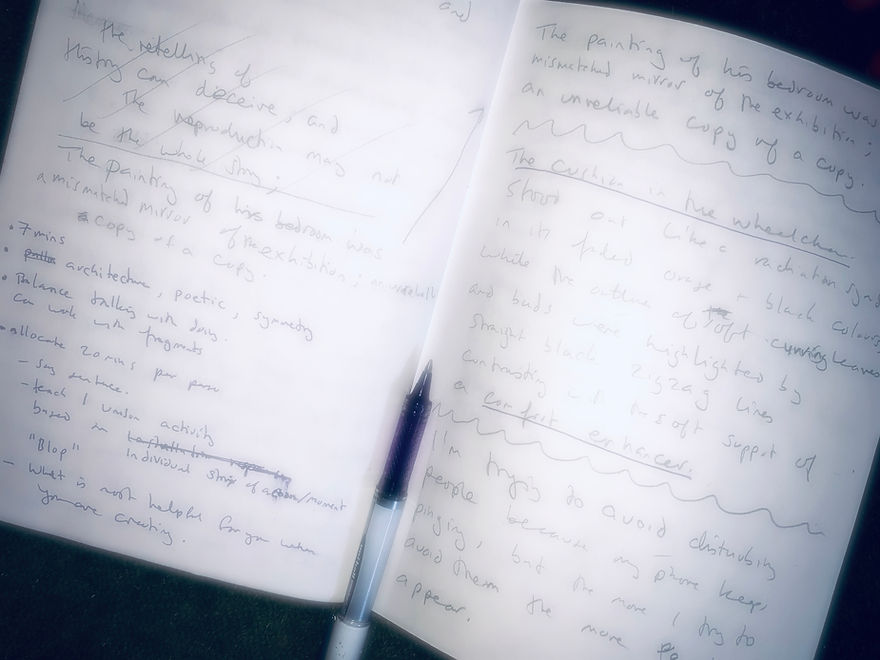 the retelling of
History can deceive, and
The reproduction may not
be the whole story;
The painting of his bedroom was
a mismatched mirror of the exhibition; an unreliable
copy of a copy.
• 7 mins
• architecture, poetic, symmetry
• Balance talking with doing.
can work with fragments
• allocate 20 mins per person
- say sentence.
- teach 1 unison activity
based on
individual strip of action/moment
"Blop"
- What is most helpful for you when
you are creating.
and
The painting of his bedroom was
mismatched mirror of the exhibition;
an unreliable copy of a copy.
The cushion in the wheelchair
stood out like a radiation sym
in its faded orange + black colours
while the outline of soft curving leaves
and buds were highlighted by
straight black zigzag lines
contrasting with the soft support of
a comfort enhancer.
I'm trying to avoid disturbing
people because my phone keeps
pinging, but the more I try to
avoid them the more
appear.